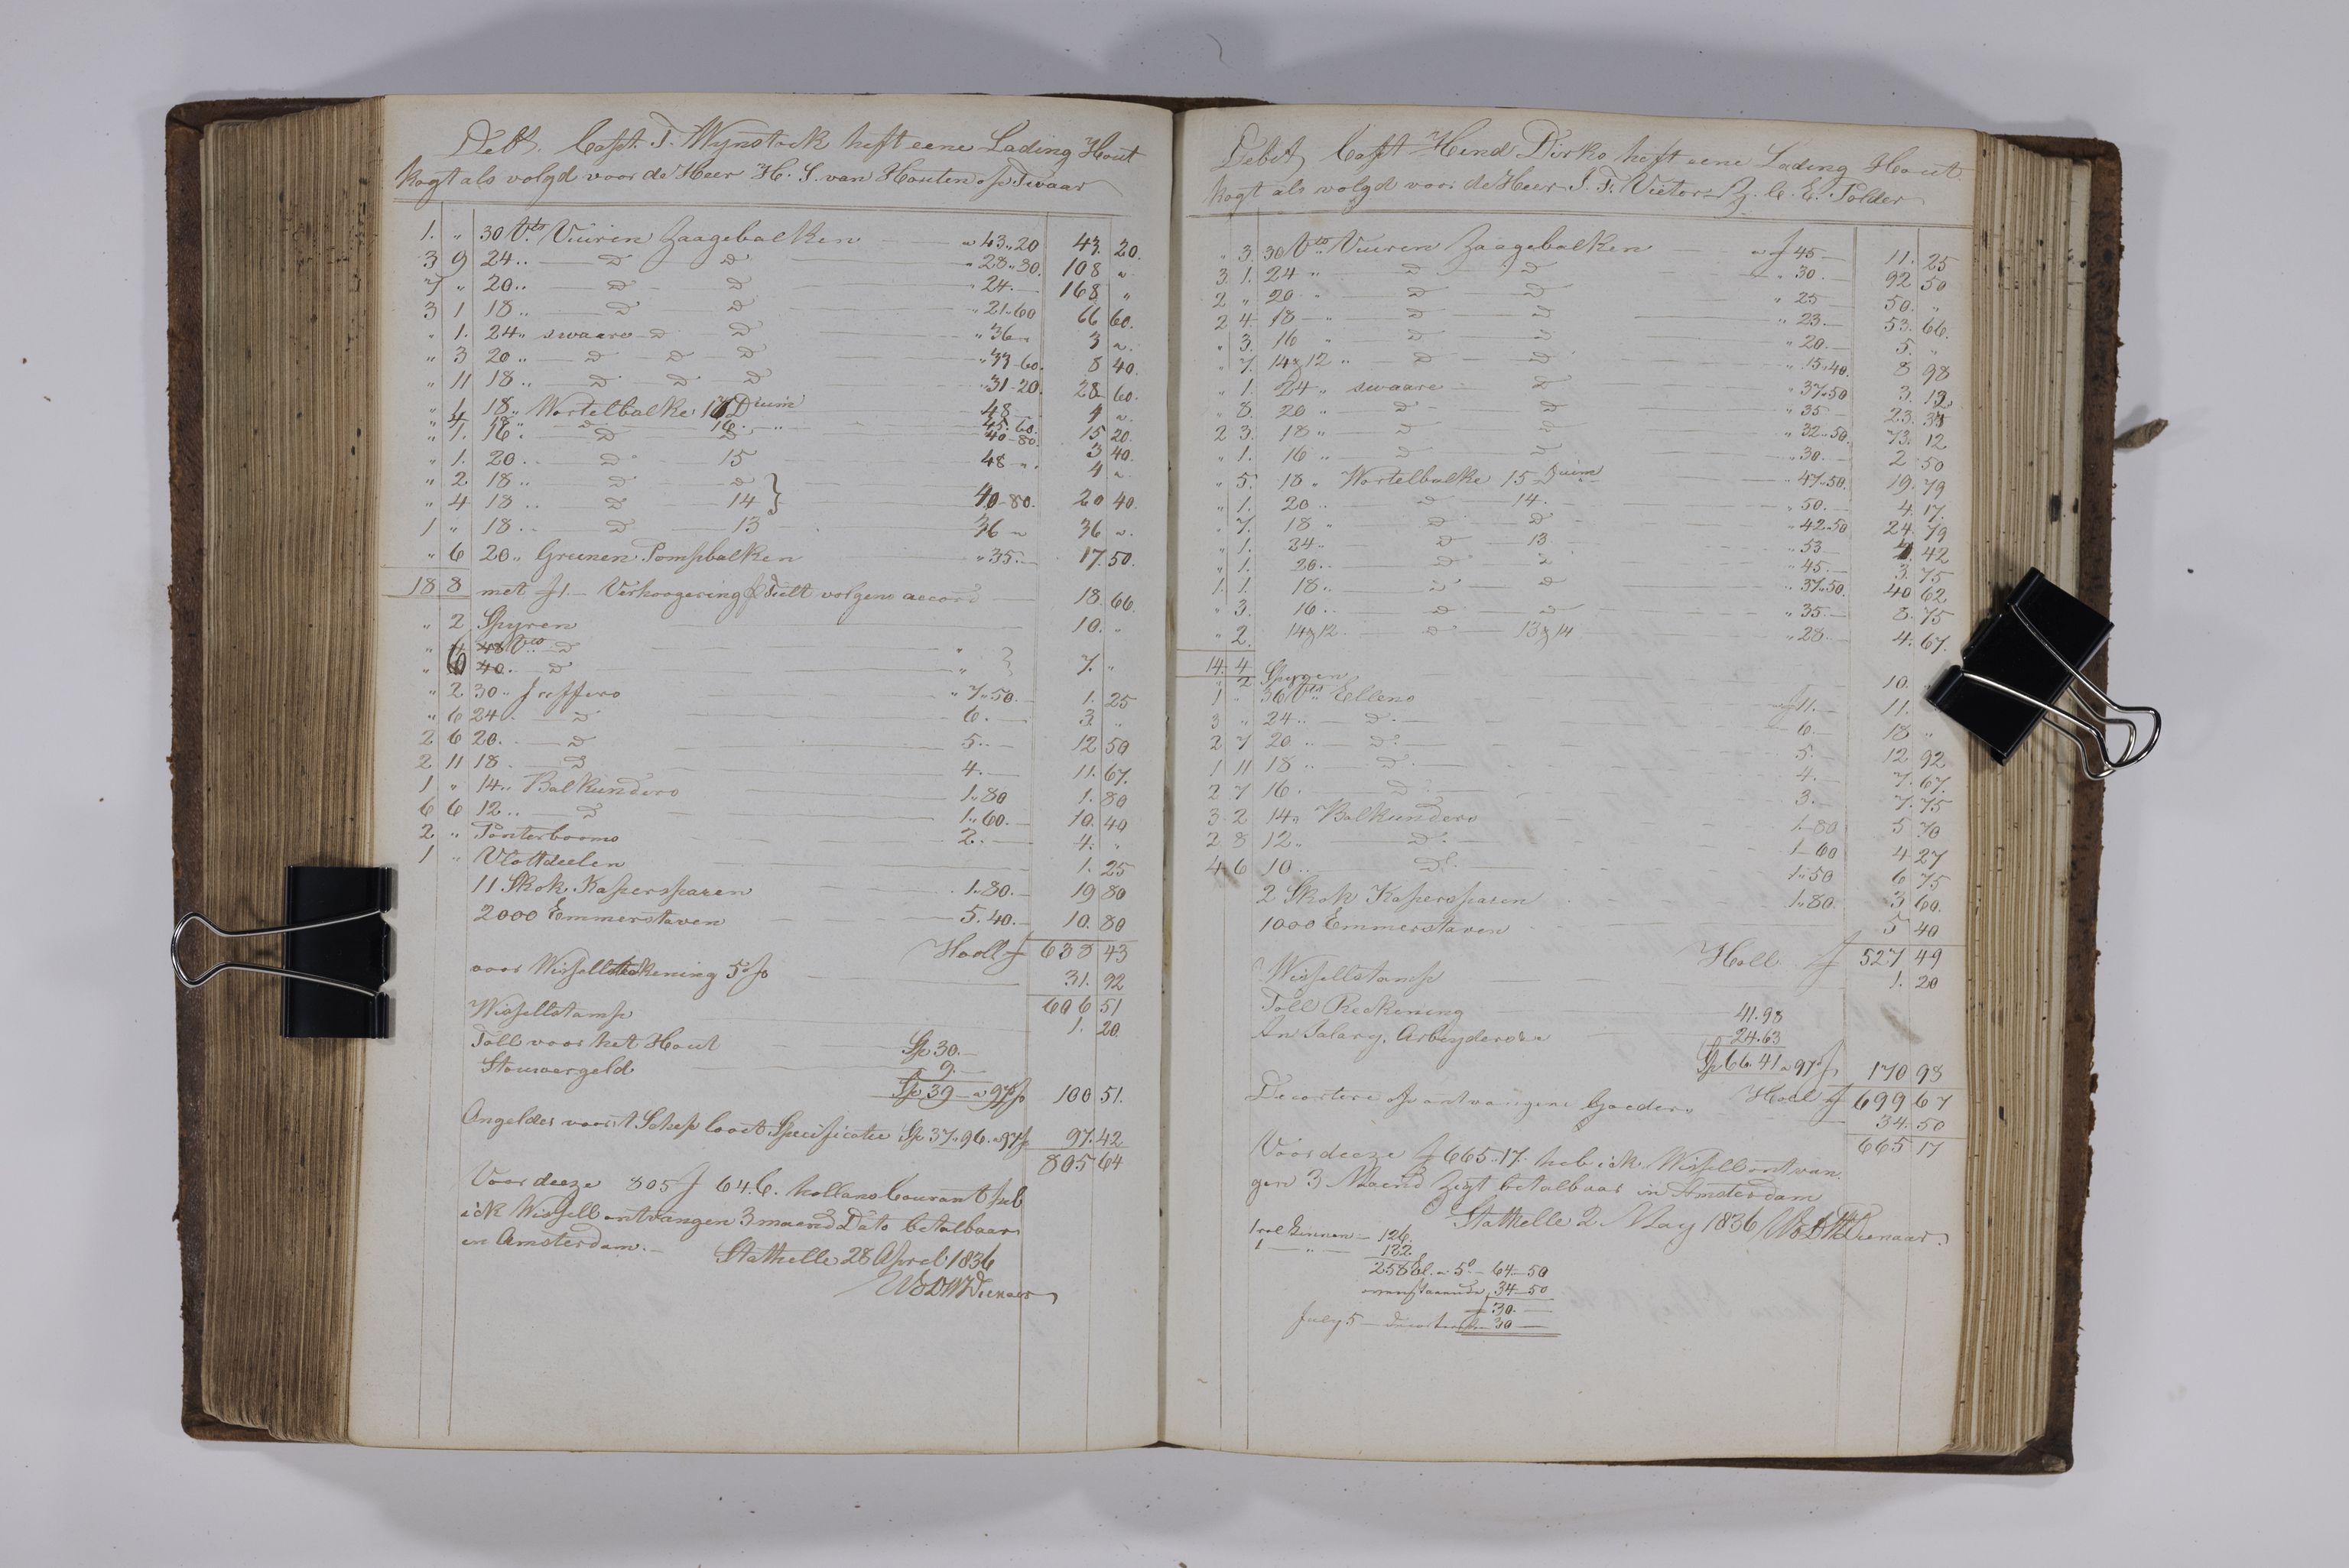 Debt. Capt. T. Wijnstock heft eene Lading Hout
kogt als volgd voor de Heer H. S. van Houten op Zwaar
1. " 30 Vts Vuiren Zaagebalken " 43"20 43. 20.
3 9 24 " D D " 28"80. 108 "
7 " 20 " D D " 24. 168 "
3 1 18 " D D " 21"60 66 60.
" 1. 24 " swaare D D " 36 " 3 "
" 3 20 " D D D " 33-60. 8 40.
" 11 18 " D D D " 31-20. 28 60.
" 1 18 " Wortelbalke 17 Duim 48 4 "
" 4 18 " D 16. " 45.60. 15 20.
" 1. 16. D D 40-80. 3 40.
" 1. 20 " D 15 48 " 4 "
" 2 18 " D D
" 4 18 " D 14 } 40-80. 20 40.
1 " 18 " D 13 36 " 36 "
" 6 20 " Greenen Pompbalken " 35. 17. 50.
18 8 met f1.- Verhoogering p Tult volgens accord 18. 66.
" 2 Spyren 10. "
" 48 Vts D "
" 6 40. D " } 7. "
" 2 30 " Juffers " 7"50. 1. 25
" 6 24. D 6. 3. "
2 6 20. D 5. 12 50
2 11 18. D 4. 11. 67.
1 " 14 " Balkunders 1"80 1. 80
6 6 12 " D 1"60. 10. 40
2 " Ponterbooms 2. 4. "
1 " Vlottdeelen 1. 25
11 Skok Kapersparen 1"80. 19 80
2000 Emmerstaven 5.40. 10. 80
Holl f 638 43
voor Wissellrekening 5 p% 31. 92
606 51
Wissellstamp 1. 20.
Toll voor het Hout Sp 30.
Stouwergeld 9.
Sp 39 " a 97 p 100 51.
Ongelder voor't Schep loodt Specificatie Sp 37"96. a 97 p 97. 42
805 64
Voor deeze 805 f 64 C. hollans Courant heb
ick Wissell ontvangen 3 maend Dato betalbaar
in Amsterdam.-
Stathelle 28 April 1836
Debet Capt Hend Dirks heft eene Lading Hout
kogt als volgd voor de Heer J. F. Vietor Z. C. E. Polder
" 3. 30 Vts Vuiren Zaagebalken " f 45 11. 25
3. 1. 24 " D D " 30. 92 50
2 " 20 " D D " 25 50. "
2 4. 18 " D D " 23. 53. 66.
" 3. 16 " D D " 20. 5. "
" 7. 14 & 12 " D D " 15"40. 8 98
" 1. 24 " swaare D " 37"50 3. 12
" 8. 20 " D D " 35 23. 33
2 3. 18 " D D " 32"50. 73. 12
" 1. 16 " D D " 30. 2 50
" 5. 18 " Wortelbalke 15 Duim " 47"50. 19. 79
" 1. 20 " D 14. " 50. 4. 17.
" 7. 18 " D D " 42"50 24. 79
" 1. 24 " D 13 " 53 4. 42
" 1. 20 " D D " 45. 3. 75
1. 1. 18 " D D " 37"50. 40 62
" 3. 16 " D D " 35. 8. 75
" 2. 14 & 12. D 13 & 14 " 28. 4. 67.
14. 4
" 2 Spyren 10. "
1 " 36 Vts Ellens " f 11. 11.
3 " 24 " D 6. 18 "
2 7 20 " D 5. 12 92
1 11 18 " D 4. 7. 67.
2 7 16. D 3. 7. 75
3. 2 14 " Balkunders 1-80 5 70
2 8 12 " D 1-60 4 27
4 6 10 " D 1"50 6 75
2 Skok Kapersparen 1"80. 3 60.
1000 Emmerstaven 5 40
Holl f 527 49
Wissellstamp 1. 20
Toll Reckening 41.98
An Salary, Arbeyders 24.63
Sp 66.41 a 97 p 170 98
Holl f 699 67
Decortere op ontvangene Goeder 34. 50
665 17
Voor deeze f 665.17. heb ick Wissell ontvan-
gen 3 Maend Zigt betalbaar in Amsterdam
Stathelle 2 May 1836
1 rol Linnen 126.
1 " 132.
258 El. a 5 64-50
34-50
30.
July 5 30